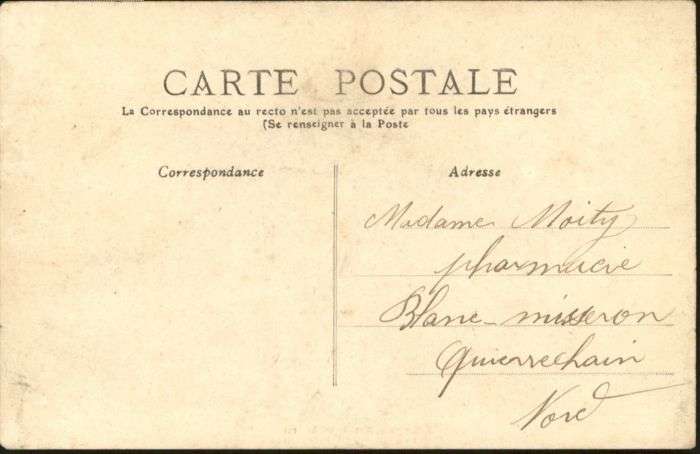 CARTE POSTALE
La Correspondance au recto n'est pas acceptée par tous les pays étrangers
(Se renseigner à la Poste
Correspondance
Adresse
Madame Moity
pharmacie
Blanc-misseron
Quierrechain
Nord